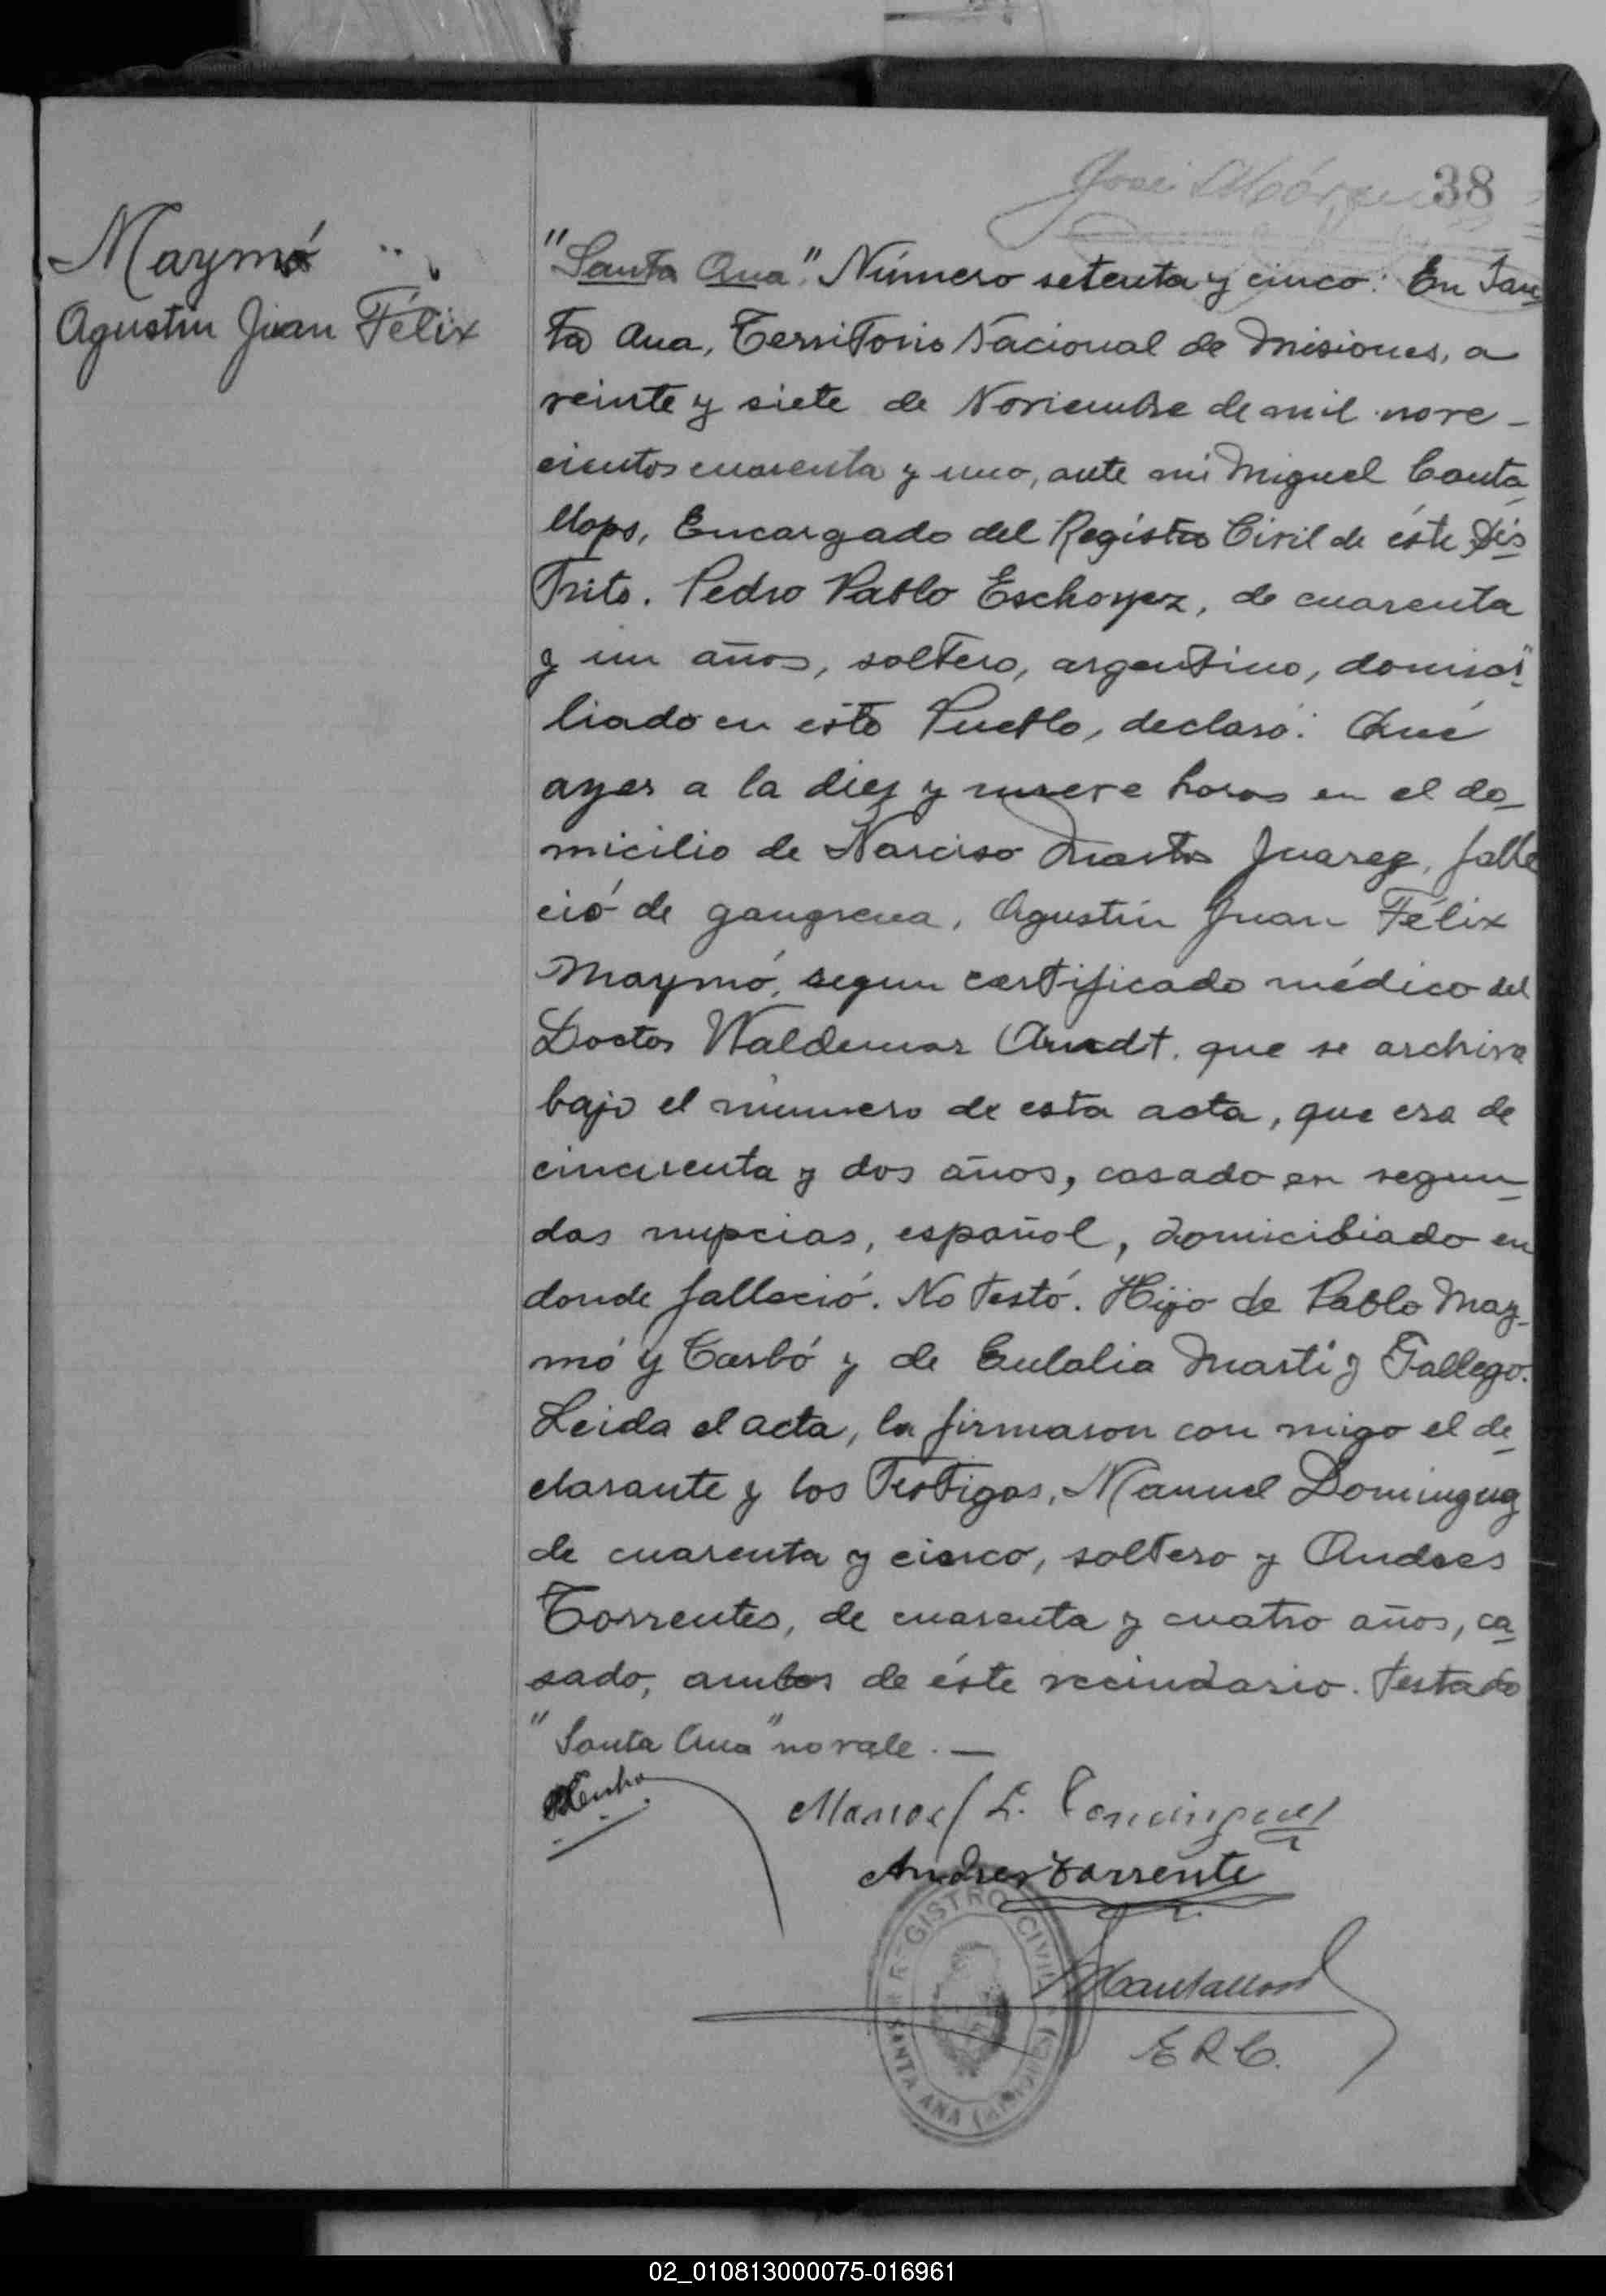 38
Maymó
Agustin Juan Félix
"Santa Ana". Número setenta y cinco: En San
ta Ana, Territorio Nacional de Misiones, a
veinte y siete de Noviembre de mil nove-
cientos cuarenta y uno, ante mi Miguel Canta
llops, Encargado del Registro Civil de éste Dis
trito. Pedro Pablo Eschoyez, de cuarenta
y un años, soltero, argentino, domici
liado en este Pueblo, declaró: Qué
ayer a la diez y nueve horas en el do-
micilio de Narciso Juarez, falle
ció de gangrena, Agustin Juan Félix
Maymó, segun certificado médico del
Doctor Waldemar Arndt, que se archiva
bajo el número de esta acta, que era de
cincuenta y dos años, casado en segun-
das nupcias, español, domiciliado en
donde falleció. No testó. Hijo de Pablo May-
mó y Carbó y de Eulalia Marti y Gallego.
Leida el acta, la firmaron con migo el de-
clarante y los testigos, Manuel Dominguez
de cuarenta y cinco, soltero y Andres
Torrentes, de cuarenta y cuatro años, ca-
sado, ambos de éste vecindario. Testado
"Santa Ana" no vale. —
Manoel L. Domingues
Andres Torrente
REGISTRO CIVIL
SANTA ANA (MISIONES)
E R C.
02_010813000075-016961